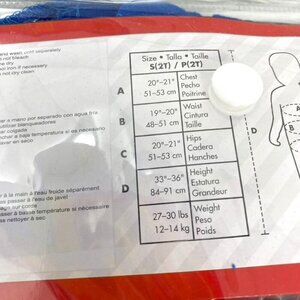 and wash separately
not bleach
dry
iron if necessary
not dry clean
a mano por separado con agua fría
blanqueadores
colgada
a baja temperatura si es necesario
en seco
à la main à l'eau froide séparément
pas à l'eau de javel
sur corde
à basse température si nécessaire
pas nettoyer à sec
Size • Talla • Taille
S(2T) / P(2T)
A
20"–21"
51–53 cm
Chest
Pecho
Poitrine
B
19"–20"
48–51 cm
Waist
Cintura
Taille
C
20"–21"
51–53 cm
Hips
Cadera
Hanches
D
33"–36"
84–91 cm
Height
Estatura
Grandeur
27–30 lbs
12–14 kg
Weight
Peso
Poids
D